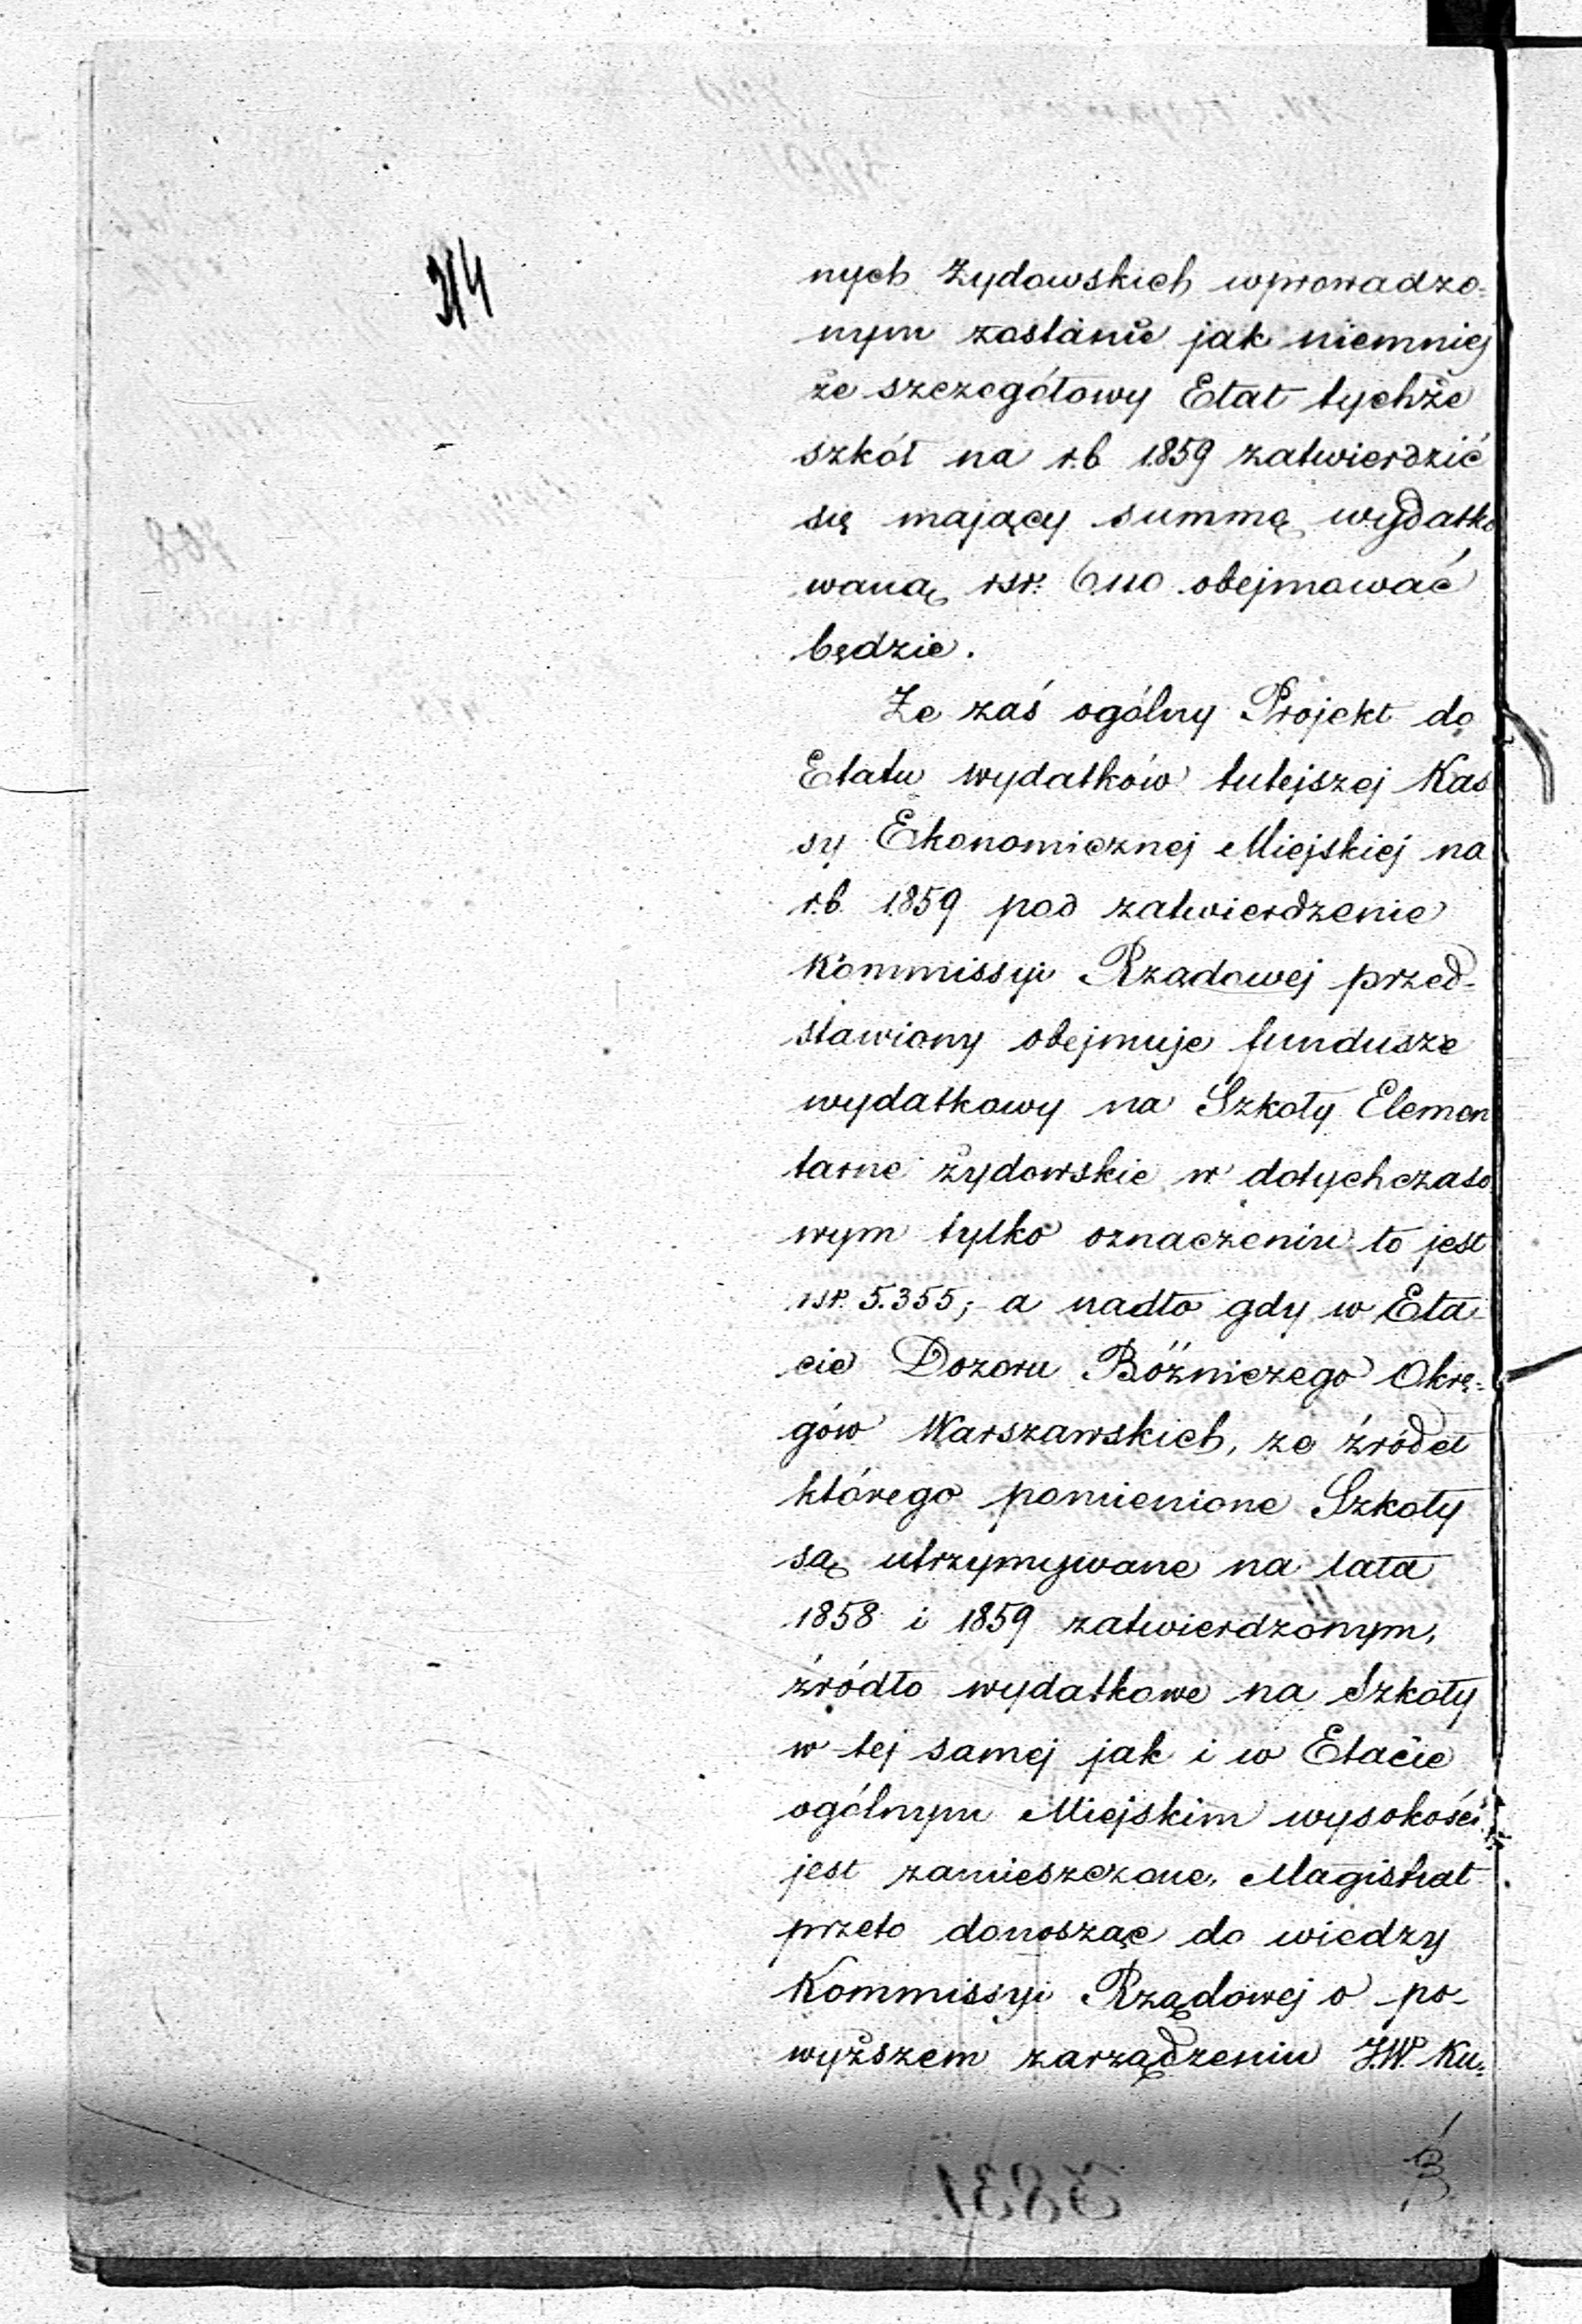 314
nych Żydowskich wprowadzo-
nym zostanie jak niemniej
że szczegółowy Etat tychże
szkół na r.b 1859 zatwierdzić
się mający summę wydatko
waną rsr. 6.110 obejmować
będzie.
Że zaś ogólny Projekt do
Etatu wydatków tutejszej Kas
sy Ekonomicznej Miejskiej na
r.b. 1859 pod zatwierdzenie
Kommissyi Rządowej przed-
stawiony obejmuje fundusze
wydatkowy na Szkoły Elemen
tarne żydowskie w dotychczaso
wym tylko oznaczeniu to jest
rsr. 5.355; a nadto gdy w Eta-
cie Dozoru Bóżniczego Okrę-
gów Warszawskich, ze źródeł
którego pomienione Szkoły
są utrzymywane na lata
1858 i 1859 zatwierdzonym,
źródło wydatkowe na Szkoły
w tej samej jak i w Etacie
ogólnym Miejskim wysokości
jest zamieszczone, Magistrat
przeto donosząc do wiedzy
Kommissyi Rządowej o po-
wyższem zarządzeniu J.W. Ku-